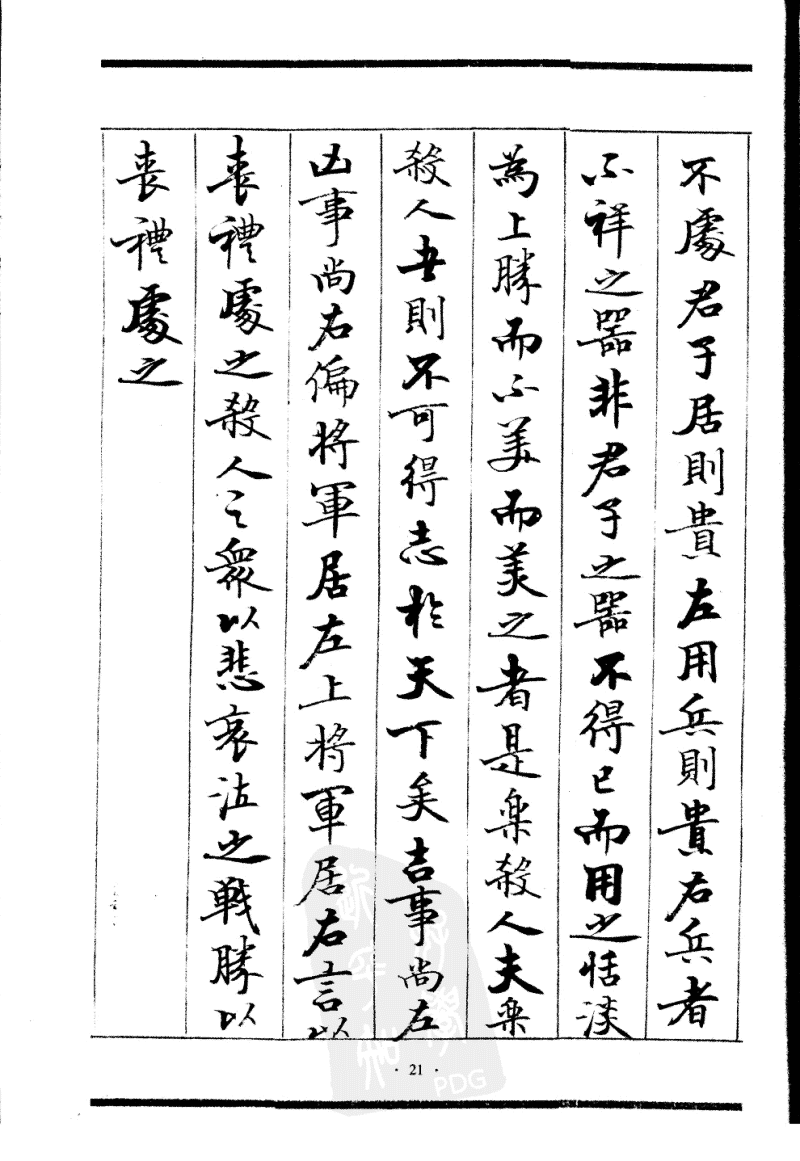 不處君子居則貴左用兵則貴右兵者
不祥之器非君子之器不得已而用之恬淡
為上勝而不美而美之者是樂殺人夫樂
殺人者則不可得志於天下矣吉事尚左
凶事尚右偏將軍居左上將軍居右言以
喪禮處之殺人之衆以悲哀泣之戰勝以
喪禮處之
· 21 ·
PDG